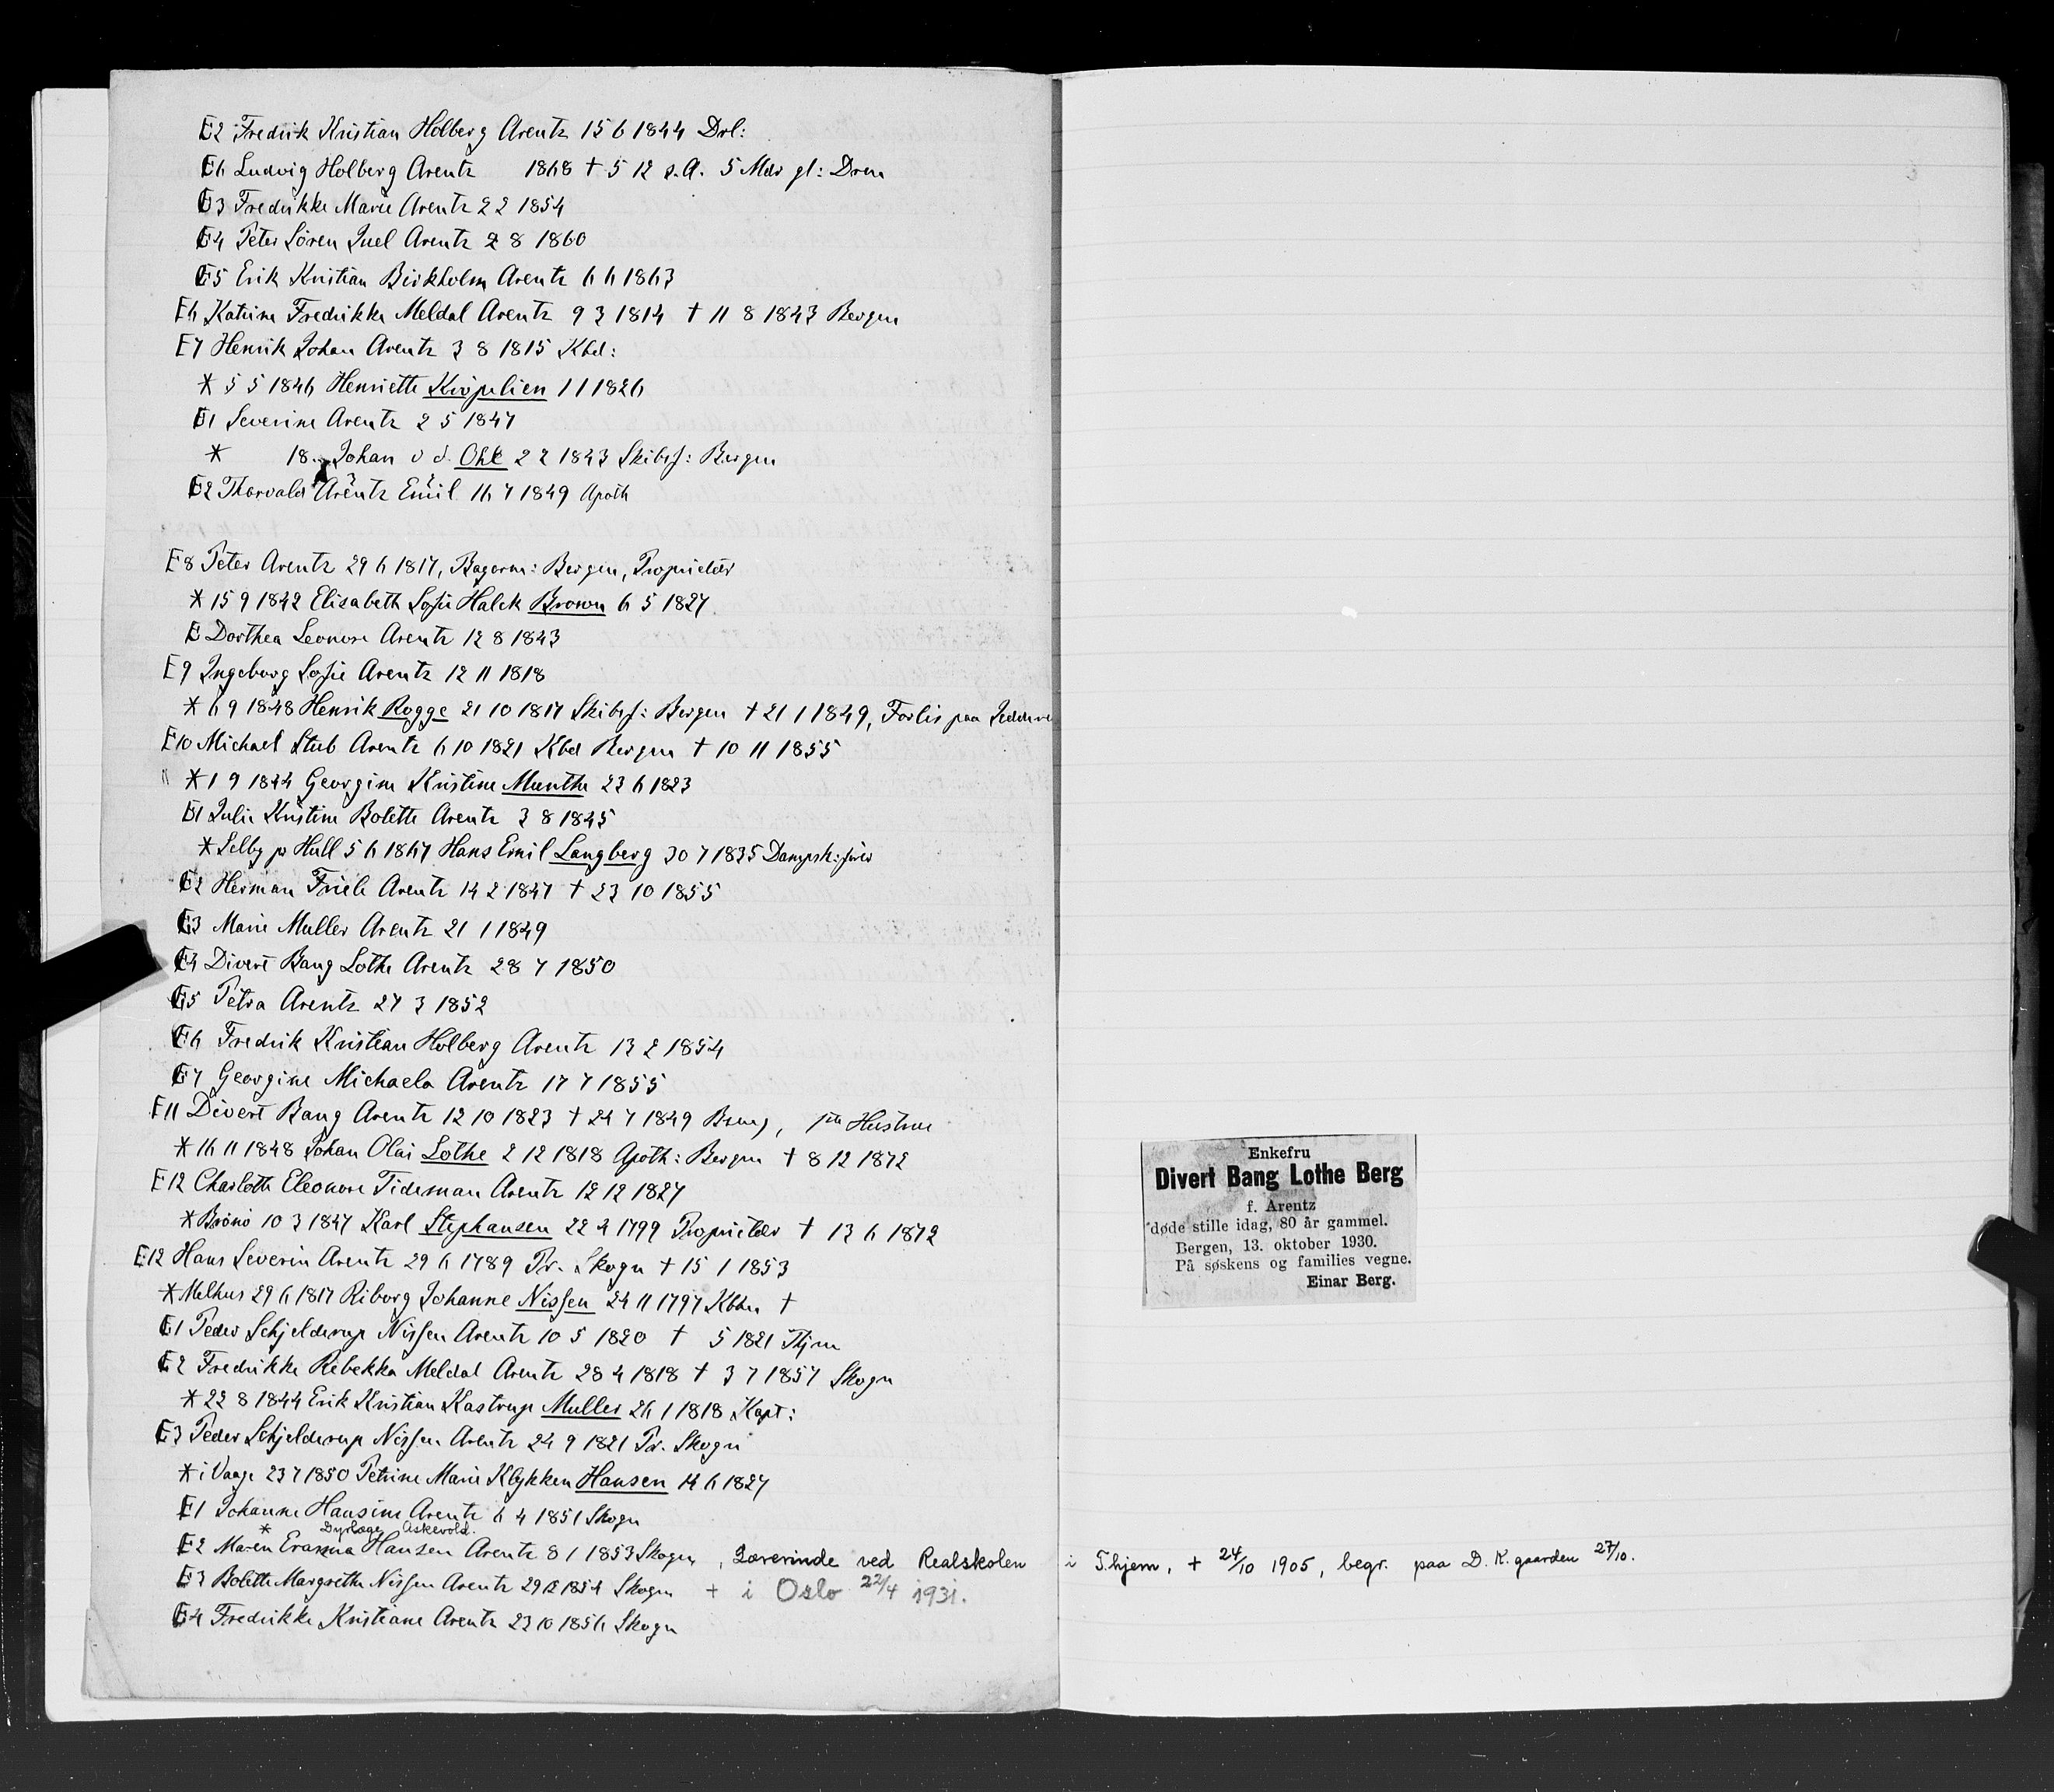 E2 Fredrik Kristian Holberg Arentz 15 6 1844 Drl:
E6 Ludvig Holberg Arentz 1868 † 5 12 s.A. 5 Mdr gl: Drm
E3 Fredrikke Marie Arentz 2 2 1854
E4 Peter Sören Juel Arentz 2 8 1860
E5 Erik Kristian Birkholm Arentz 6 6 1863
E6 Katrine Fredrikke Meldal Arentz 9 3 1814 † 11 8 1843 Bergen
E7 Henrik Johan Arentz 3 8 1815 Kbd:
* 5 5 1846 Henriette 1 1 1826
E1 Severine Arentz 2 5 1847
* 18 Johan v d. Ohe 2 2 1843 Skibsf: Bergen
E2 Thorvald Arentz Emil 16 7 1849 Apoth
E8 Peter Arentz 29 6 1817, Bagerm: Bergen, Proprietær
* 15 9 1842 Elisabeth Sofie Halck Brown 6 5 1827
E Dorthea Leonore Arentz 12 8 1843
E9 Ingeborg Sofie Arentz 12 11 1818
* 6 9 1848 Henrik Rogge 21 10 1817 Skibsf: Bergen † 21 1 1849, Forlis paa
E10 Michael Stub Arentz 6 10 1821 Kbd Bergen † 10 11 1855
" * 1 9 1844 Georgine Kristine Munthe 23 6 1823
E1 Julie Kristine Bolette Arentz 3 8 1845
* Selby p Hull 5 6 1867 Hans Emil Langberg 30 7 1835 Dampsk:fører
E2 Herman Friele Arentz 14 2 1847 † 23 10 1855
E3 Marie Muller Arentz 21 1 1849
E4 Divert Bang Lothe Arentz 28 7 1850
E5 Petra Arentz 27 3 1852
E6 Fredrik Kristian Holberg Arentz 13 2 1854
E7 Georgine Michaela Arentz 17 7 1855
E11 Divert Bang Arentz 12 10 1823 † 24 7 1849 Hustru
* 16 11 1848 Johan Olai Lothe 2 12 1818 Apoth: Bergen † 8 12 1872
E12 Charlotte Eleonore Tideman Arentz 12 12 1827
* Brönö 10 3 1847 Karl Stephansen 22 4 1799 Proprietær † 13 6 1872
E12 Hans Severin Arentz 29 6 1789 Pr. Skogn † 15 1 1853
* Melhus 29 6 1817 Riborg Johanne Nissen 24 11 1797 Kbhn †
E1 Peder Schjelderup Nissen Arentz 10 5 1820 † 5 1821 Thjm
E2 Fredrikke Rebekka Meldal Arentz 28 4 1818 † 3 7 1857 Skogn
* 22 8 1844 Erik Kristian Kastrup Muller 26 1 1818 Kapt:
E3 Peder Schjelderup Nissen Arentz 24 9 1821 Pr. Skogn
* i Vaage 23 7 1850 Petrine Marie Klykken Hansen 14 6 1827
E1 Johanne Hansine Arentz 6 4 1851 Skogn
* Dyrlæge Askevold.
E2 Maren Erasma Hansen Arentz 8 1 1853 Skogn, Lærerinde ved Realskolen i T.hjem, + 24/10 1905, begr. paa D. K. gaarden 27/10.
E3 Bolette Margrethe Nissen Arentz 29 12 1854 Skogn + i Oslo 22/4 1931.
E4 Fredrikke Kristiane Arentz 23 10 1856 Skogn
Enkefru
Divert Bang Lothe Berg
f. Arentz
døde stille idag, 80 år gammel.
Bergen, 13. oktober 1930.
På søskens og families vegne.
Einar Berg.